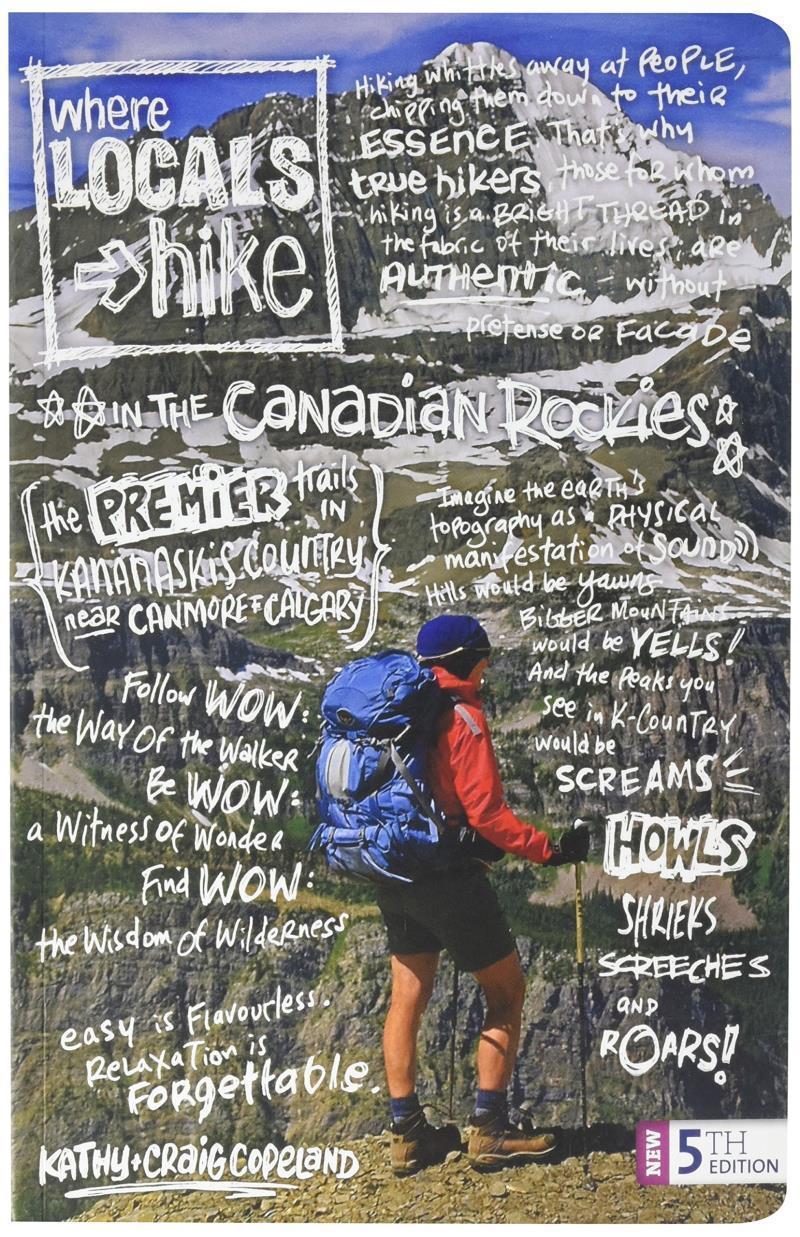 where
LOCALS
hike
Hiking whittles away at PEOPLE,
chipping them down to their
ESSENCE. That's why
true hikers, those for whom
hiking is a BRIGHT THREAD in
the fabric of their lives, are
AUTHENTIC – without
pretense OR FACADE
IN THE CANADIAN ROCKIES
the PREMIER trails
IN
KANANASKIS COUNTRY
near CANMORE + CALGARY
Imagine the EARTH'S
topography as a PHYSICAL
manifestation of SOUND
Hills would be yawns
BIGGER MOUNTAINS
would be YELLS!
And the Peaks you
see in K-COUNTRY
would be
SCREAMS
HOWLS
SHRIEKS
SCREECHES
AND
ROARS!
Follow WOW:
the Way Of the Walker
Be WOW:
a Witness of Wonder
Find WOW:
the Wisdom of Wilderness
easy is Flavourless.
Relaxation is
Forgettable.
KATHY + CRAIG COPELAND
NEW
5TH
EDITION